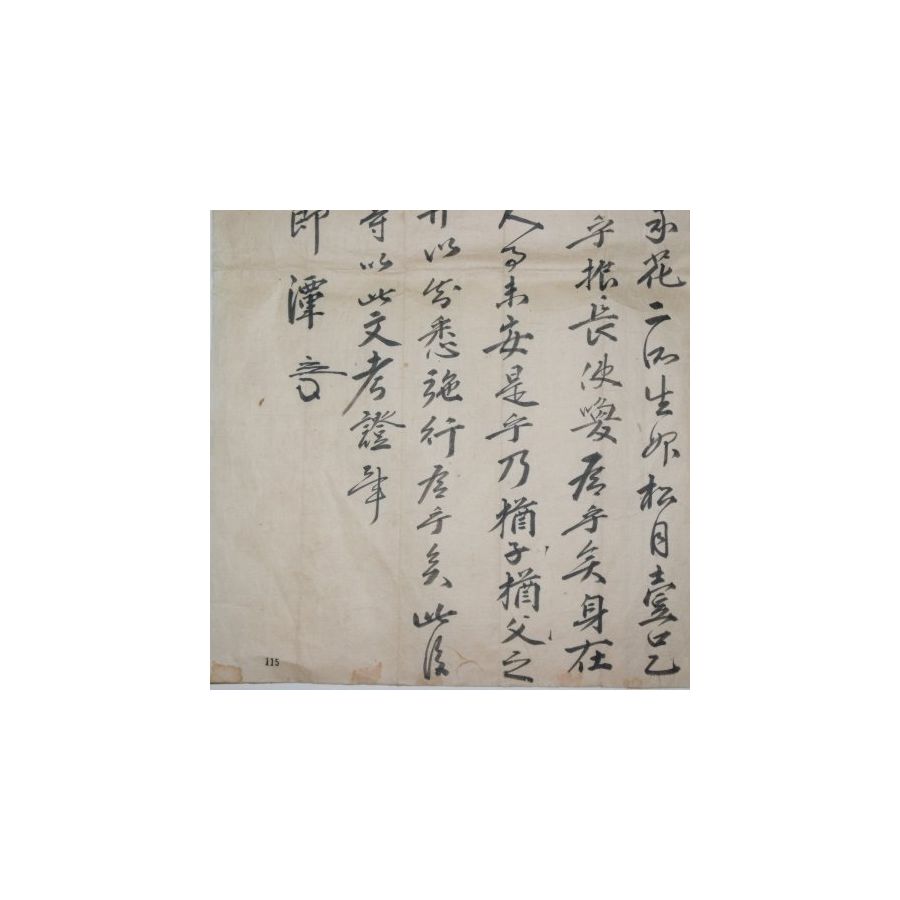 花二所生婢松月壹口乙
乎長使喚爲乎矣身在
人事未安是乎乃猶子猶父之
以知悉施行爲乎矣此後
等以此文考證事
郎潭
115